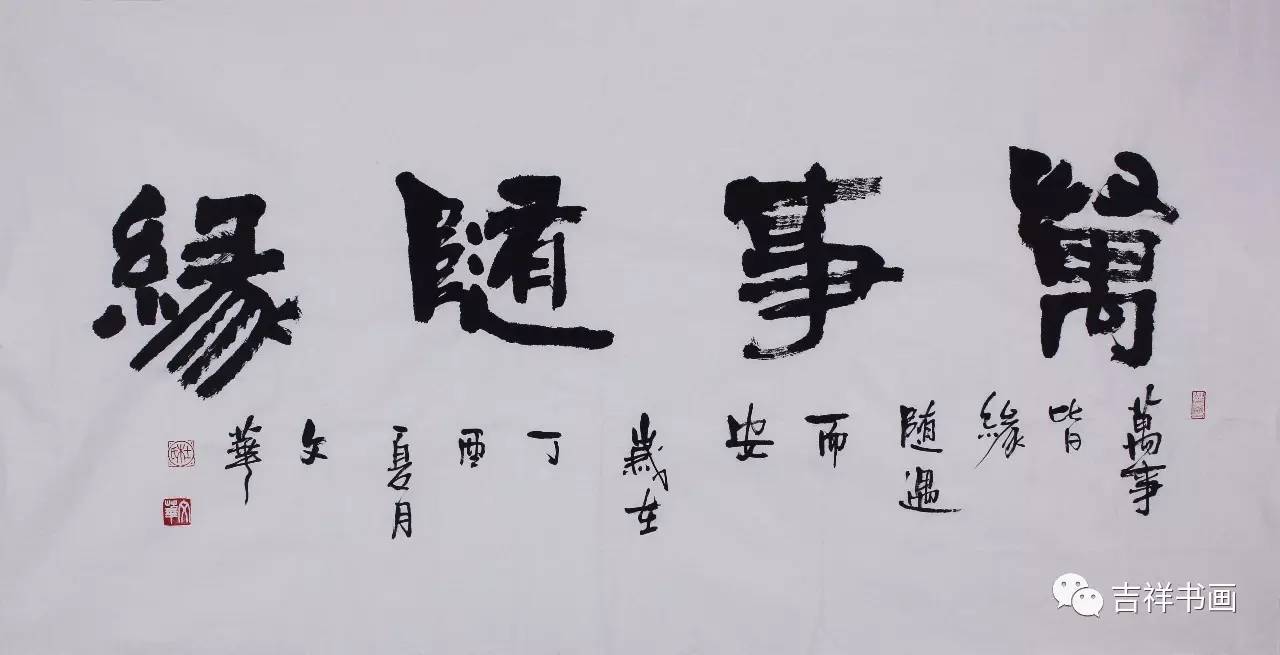 萬事隨緣
萬事
皆
緣
隨遇
而
安
歲在
丁
酉
夏月
文
華
文華
吉祥书画